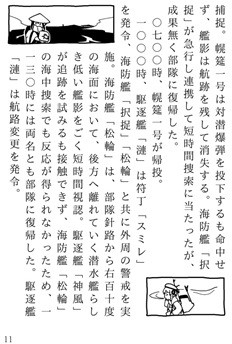 捕捉。幌筵一号は対潜爆弾を投下するも命中せ
ず、艦影は航跡を残して消失する。海防艦「択
捉」が急行し連携して短時間捜索に当たったが、
成果無く部隊に復帰した。
〇七〇〇時、幌筵一号が帰投。
一〇〇〇時、駆逐艦「漣」は符丁「スミレ」
を発令、海防艦「択捉」「松輪」と共に外周の警戒を実
施。海防艦「松輪」は、部隊針路から右百十度
の海面において、後方へ離れていく潜水艦らし
き低い艦影をごく短時間視認。駆逐艦「神風」
が追跡を試みるも接触できず、海防艦「松輪」
の海中捜索でも反応が得られなかったため、一
一三〇時には両名とも部隊に復帰した。駆逐艦
「漣」は航路変更を発令。
11